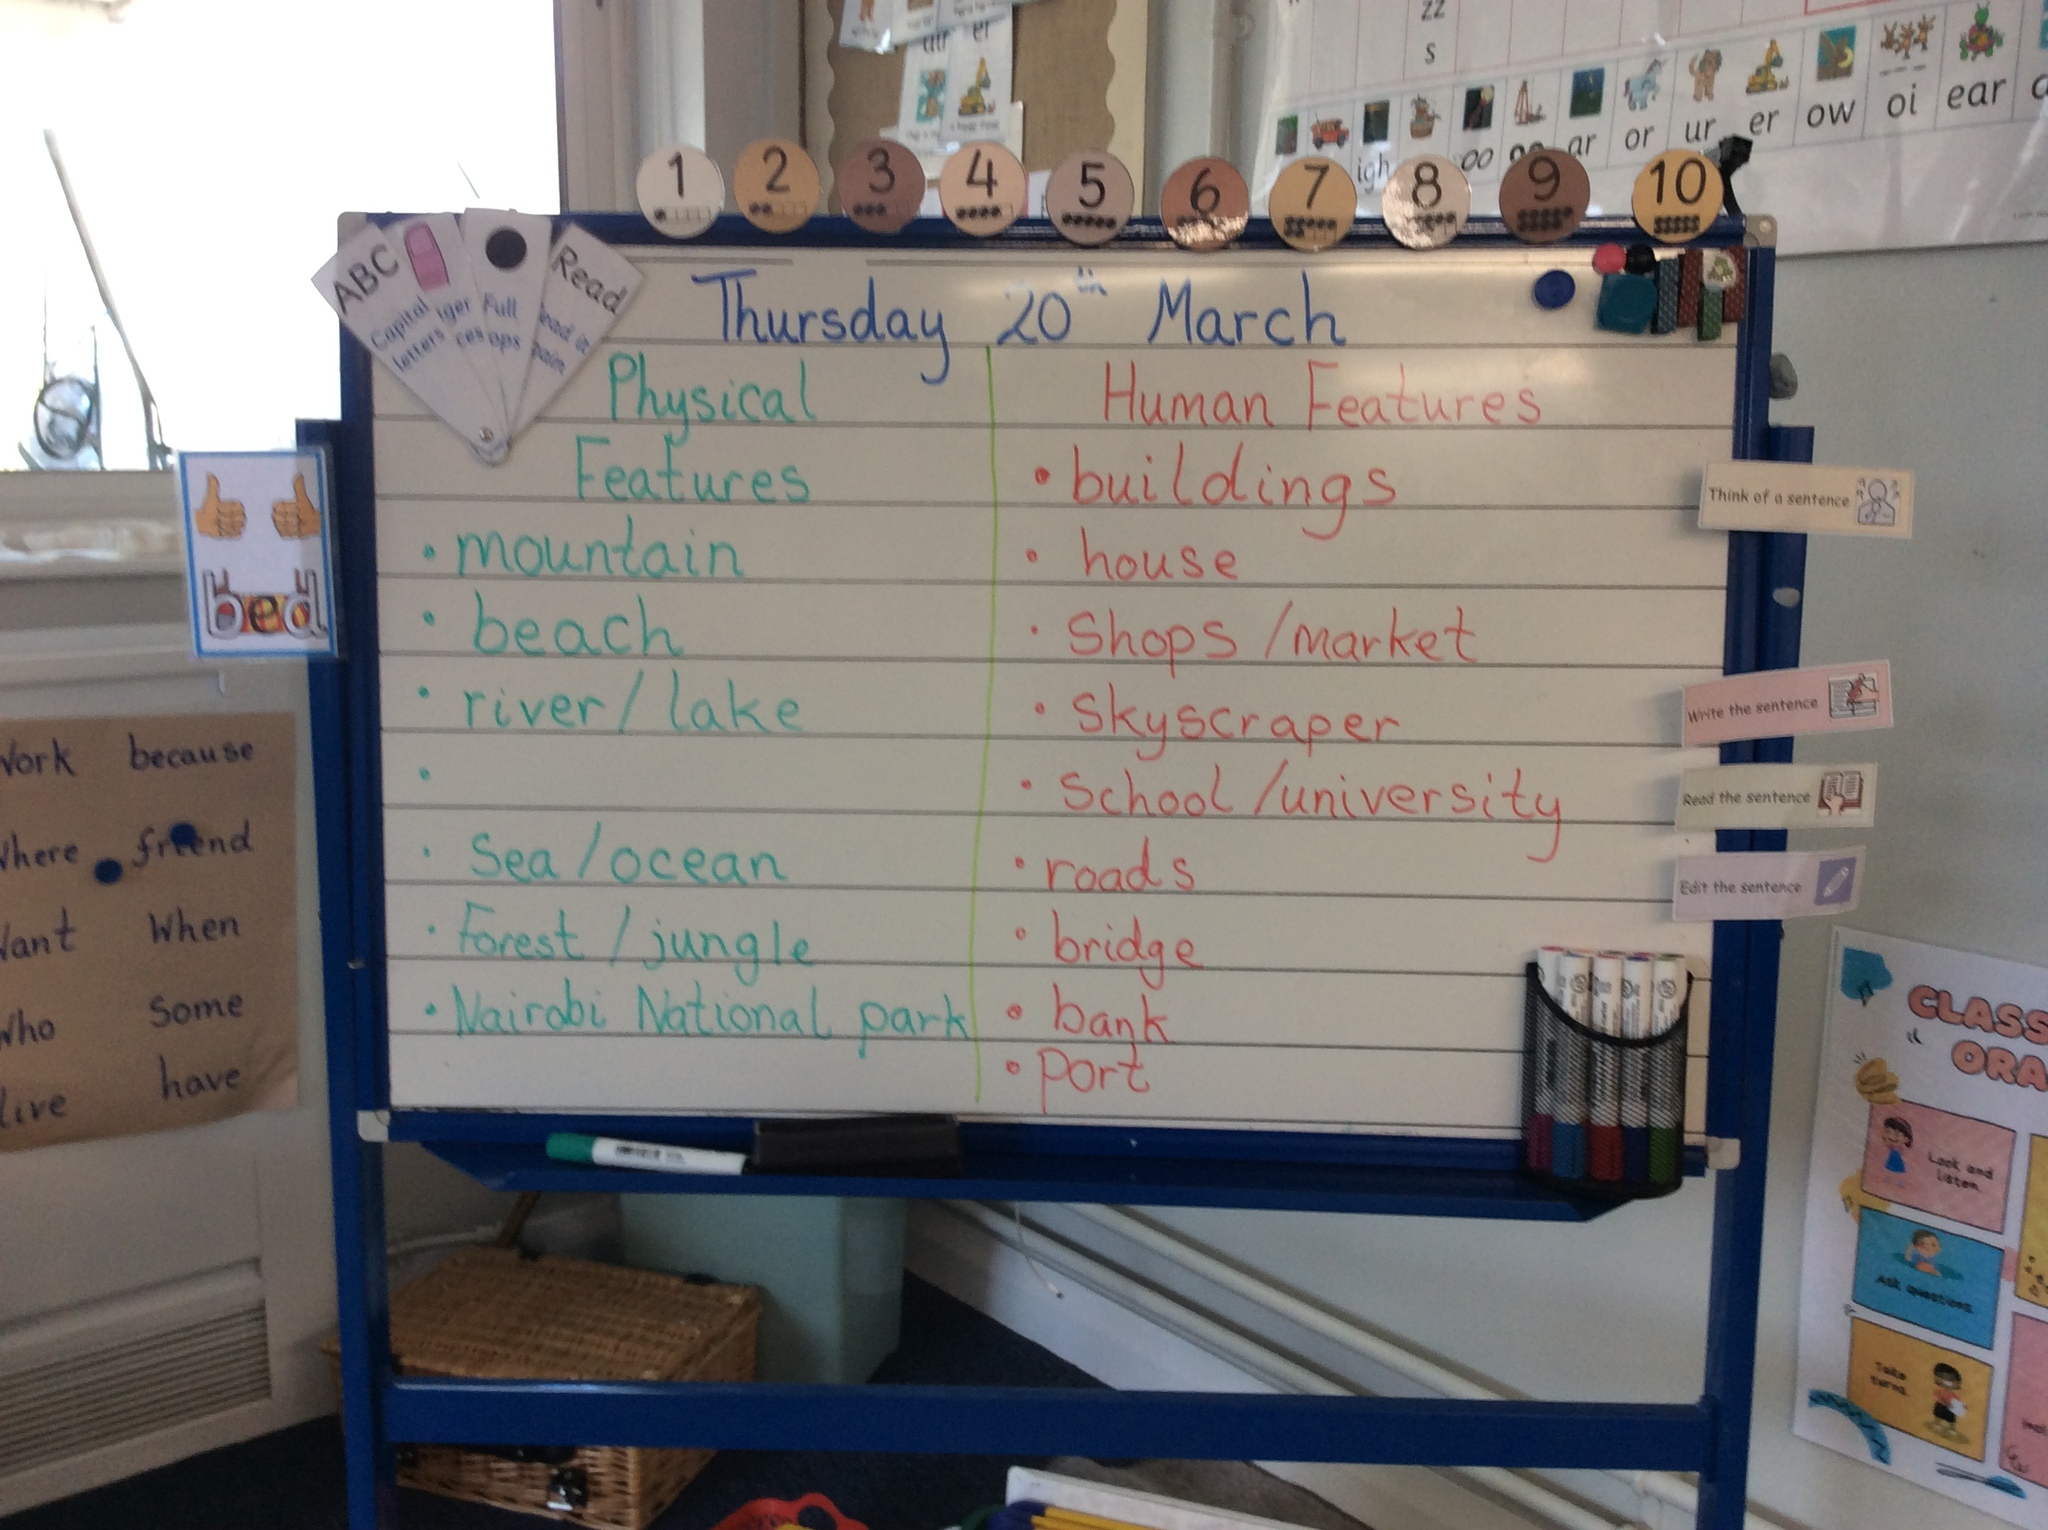 zz
s
er
igh oo ar or ur er ow oi ear
1 2 3 4 5 6 7 8 9 10
ABC
Capital
letters
Full
Read
Thursday 20th March
Physical
Features
• mountain
• beach
• river / lake
•
• Sea / ocean
• Forest / jungle
• Nairobi National park
Human Features
• buildings
• house
• Shops / market
• Skyscraper
• School / university
• roads
• bridge
• bank
• port
bed
Think of a sentence
Write the sentence
Read the sentence
Edit the sentence
because
friend
When
Some
have
CLASS
ORA
Look and
listen
Ask questions
Take
turns